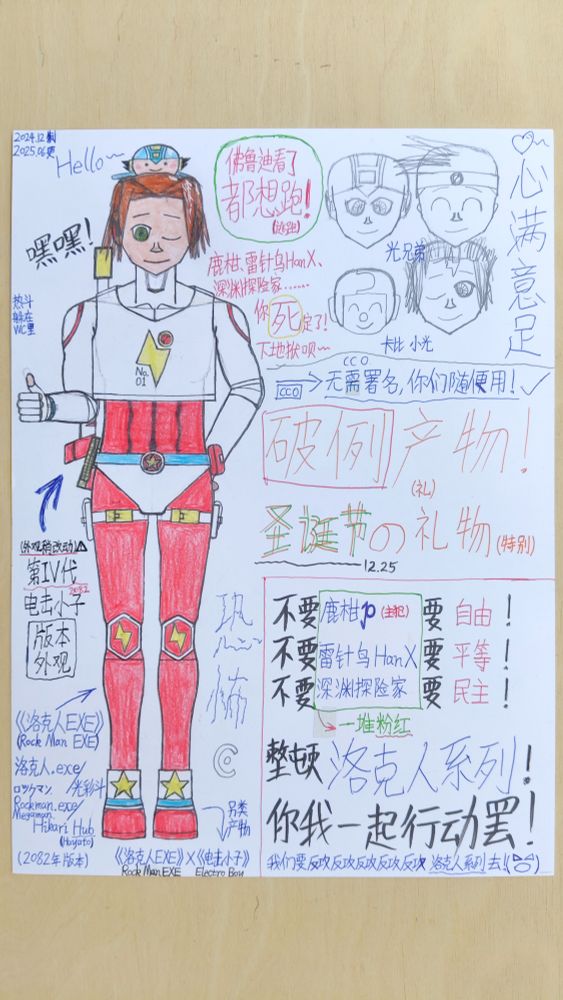 2024.12
2025.06
Hello~
嘿嘿!
热斗
躲在
WC里
No.
01
(外观稍改动)
第IV代
2082
电击小子
版本
外观
《洛克人EXE》
(Rock Man EXE)
洛克人.exe/
光彩斗
ロックマン.
Rockman.exe/
Megaman.
Hikari Hub
(Hayato)
(2082年版本)
佛鲁迪看了
都想跑!
鹿柑、雷针鸟HanX、
深渊探险家......
你死定了!
下地狱呗~
光兄弟
卡比 小光
心满意足
CC0
CC0 无需署名,你们随便用!
破例产物!
(礼)
圣诞节の礼物(特别)
12.25
不要鹿柑P(主犯)要自由!
不要雷针鸟HanX要平等!
不要深渊探险家要民主!
一堆粉红
整顿洛克人系列!
你我一起行动罢!
我们要反攻反攻反攻反攻反攻 洛克人系列去!
另类
产物
《洛克人EXE》X《电击小子》
Rock Man EXE Electro Boy